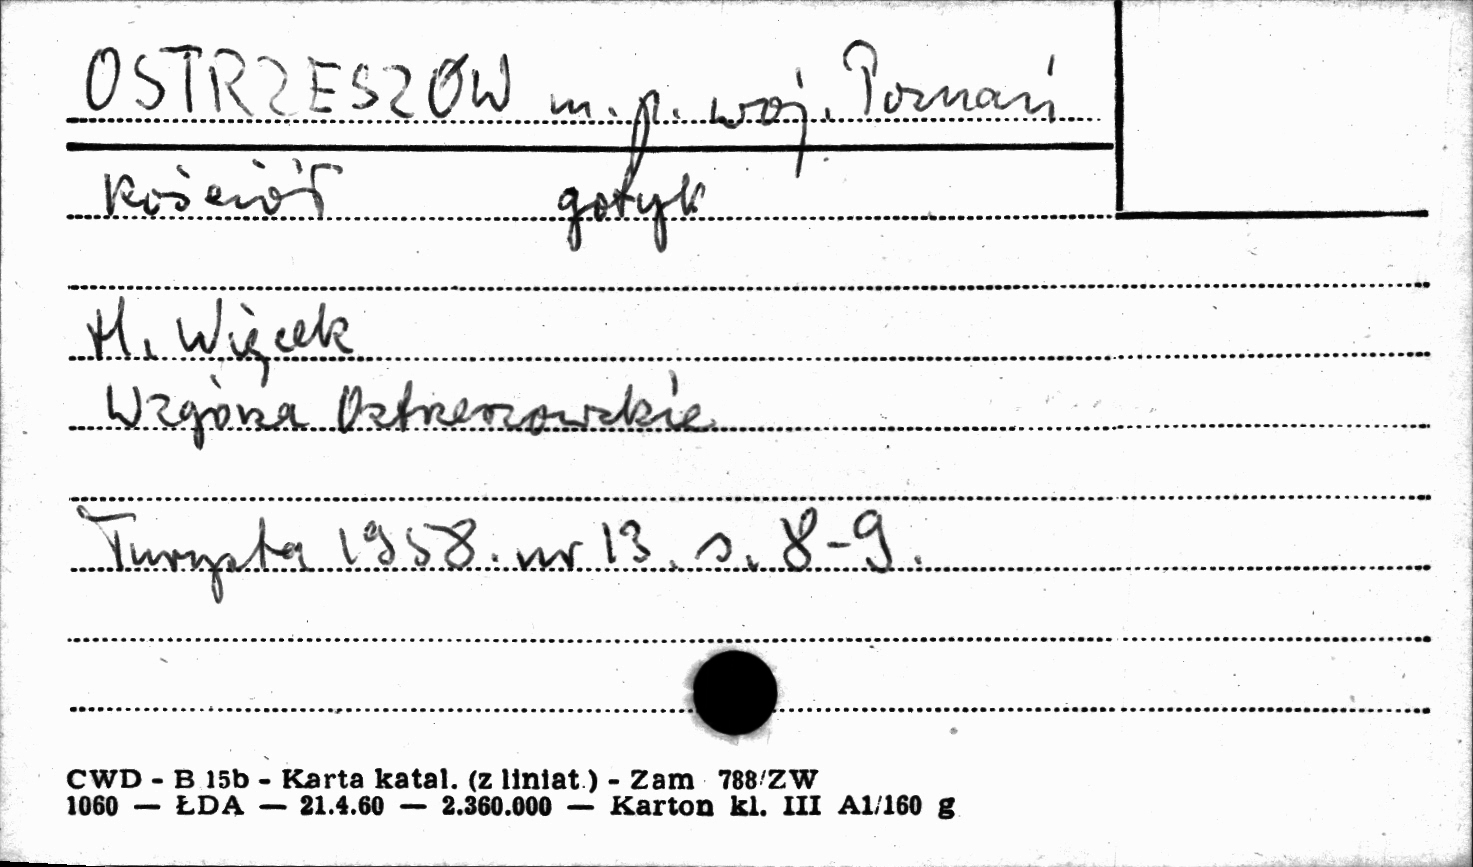 OSTRZESZÓW m. p. woj. Poznań
Kościół gotyk
H. Więcek
Wzgórza Ostrzeszowskie
Turysta 1958. nr 13. s. 8-9.
CWD - B 15b - Karta katal. (z liniat.) - Zam 788/ZW
1060 — ŁDA — 21.4.60 — 2.360.000 — Karton kl. III A1/160 g